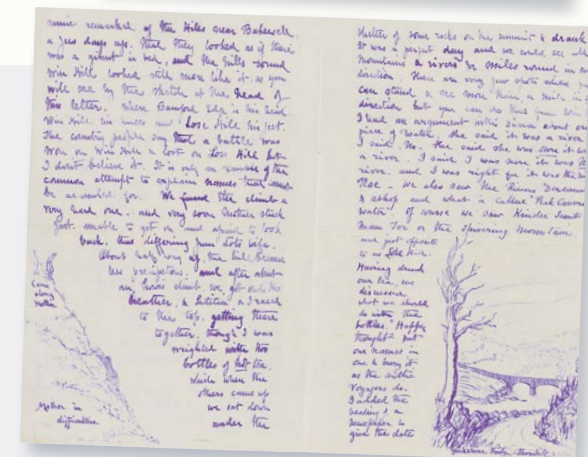 remarked of the Hills near Bakewell
a few days ago. that they looked as if there
was a giant in bed, and the hills round
Win Hill looked still more like it. as you
will see by the sketch at the head of
this letter. where Bamford Edge is his head
Win Hill his knees and Lose Hill his feet.
The country people say that a battle was
won on Win Hill & lost on Lose Hill but
I don't believe it. It is only an example of the
common attempt to explain names that cannot
be accounted for. We found the climb a
very hard one. and very soon Mother stuck
fast. unable to get on and afraid to look
back. thus differing from Lots wife.
About half way up the hill became
less precipitous. and after about
an hours climb we got on the
heather, & I raced
to the top. getting there
together, though I was
weighted with two
bottles of hot tea.
which when the
others came up
we sat down
under the
Come along Mother
Mother in
difficulties
shelter of some rocks on the summit & drank
It was a perfect day and we could see
mountains & rivers for miles round in
direction. There are very few spots where you
can stand & see more than a mile in
direction but you can do this from Win
I had an argument with about
piece of water. She said it was a river
I said. No. She said she was sure it
a river. I said I was sure it was
river. and I was right for it was the
We also saw the Rivers Derwent
& Ashop and what is called "Peak Cavern
water". Of course we saw Kinder Scout
Mam Tor or the shivering Mountain
and just opposite
to us Lose Hill.
Having drunk
our tea, we
discussed
what we should
do with the
bottles. Happy
thought put
our names in
one & bury it
as the
Voyagers do.
I added the
heading of a
newspaper to
give the date
Yorkshire Bridge